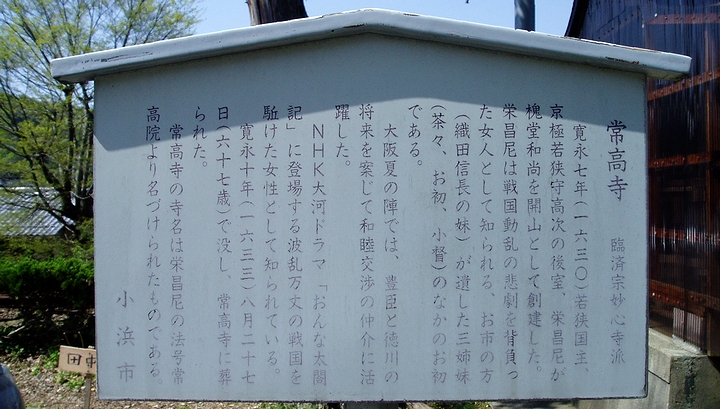 常高寺　臨済宗妙心寺派
寛永七年(一六三〇)若狭国主、
京極若狭守高次の後室、栄昌尼が
槐堂和尚を開山として創建した。
栄昌尼は戦国動乱の悲劇を背負っ
た女人として知られる、お市の方
(織田信長の妹)が遺した三姉妹
(茶々、お初、小督)のなかのお初
である。
大阪夏の陣では、豊臣と徳川の
将来を案じて和睦交渉の仲介に活
躍した。
NHK大河ドラマ「おんな太閤
記」に登場する波乱万丈の戦国を
駈けた女性として知られている。
寛永十年(一六三三)八月二十七
日(六十七歳)で没し、常高寺に葬
られた。
常高寺の寺名は栄昌尼の法号常
高院より名づけられたものである。
小浜市
田中